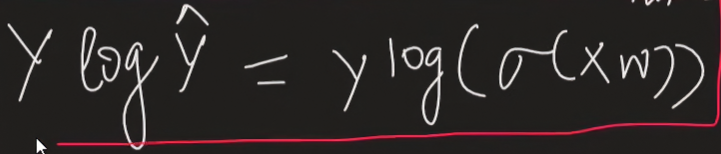 Y log ŷ = y log(σ(xw))